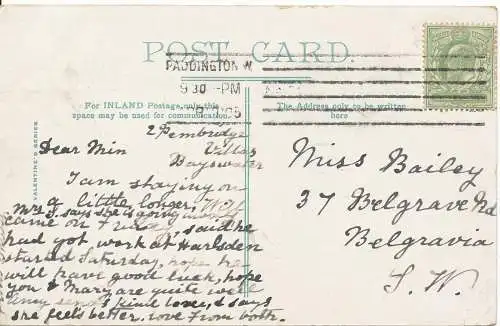 POST CARD.
PADDINGTON.W.
9 30 PM
05
For INLAND Postage only this
space may be used for communication.
The Address only to be written
here
VALENTINE'S SERIES
2 Pembridge
Villas
Bayswater
Dear Min
I am staying on
a little longer,
Mrs J. says she is going
came on Friday, said he
had got work at Harlsden
started Saturday, hope he
will have good luck, hope
you & Mary are quite well
Amy sends kind love, & says
she feels better. love from both.
Miss Bailey
37 Belgrave Rd
Belgravia
S. W.